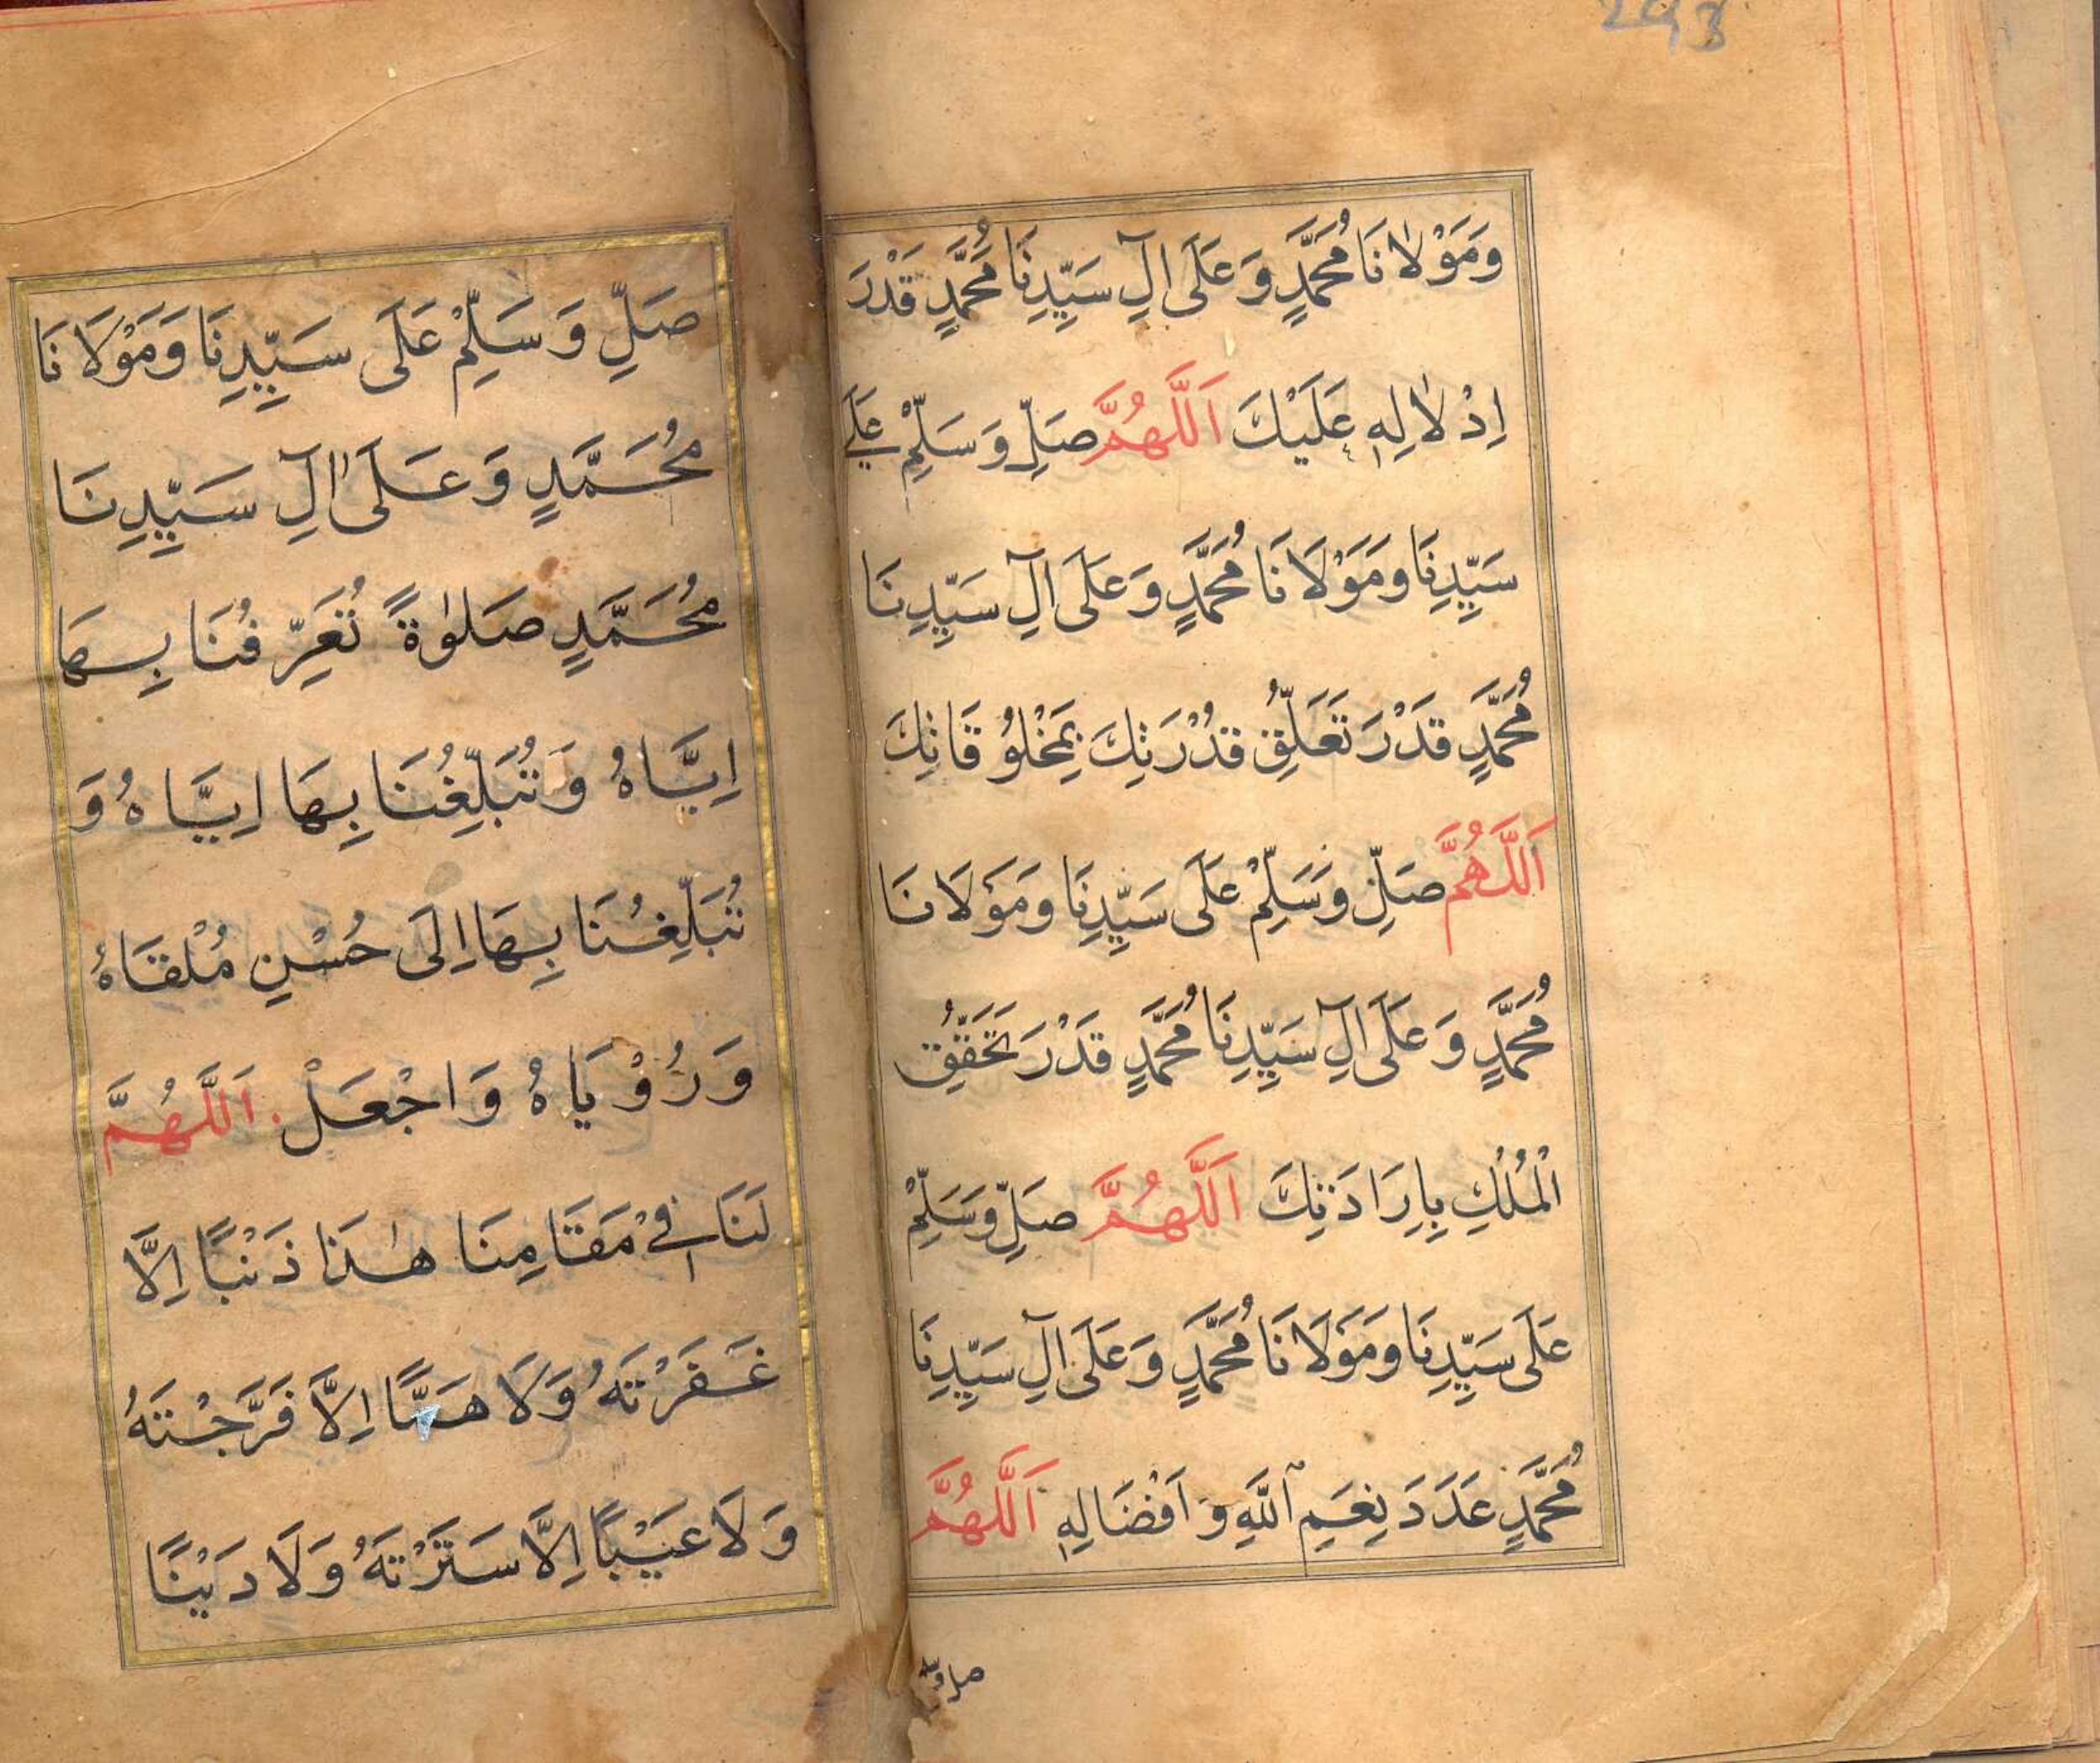 293
وَمَوْلَانَا مُحَمَّدٍ وَعَلَى اٰلِ سَيِّدِنَا مُحَمَّدٍ قَدْرَ
اِدْلَالِهٖ عَلَيْكَ اَللّٰهُمَّ صَلِّ وَسَلِّمْ عَلٰى
سَيِّدِنَا وَمَوْلَانَا مُحَمَّدٍ وَعَلَى اٰلِ سَيِّدِنَا
مُحَمَّدٍ قَدْرَ تَعَلُّقِ قُدْرَتِكَ بِمَخْلُوقَاتِكَ
اَللّٰهُمَّ صَلِّ وَسَلِّمْ عَلَى سَيِّدِنَا وَمَوْلَانَا
مُحَمَّدٍ وَعَلَى اٰلِ سَيِّدِنَا مُحَمَّدٍ قَدْرَ تَحَقُّقِ
الْمُلْكِ بِاِرَادَتِكَ اَللّٰهُمَّ صَلِّ وَسَلِّمْ
عَلَى سَيِّدِنَا وَمَوْلَانَا مُحَمَّدٍ وَعَلَى اٰلِ سَيِّدِنَا
مُحَمَّدٍ عَدَدَ نِعَمِ اللّٰهِ وَاَفْضَالِهٖ اَللّٰهُمَّ
صل وسلم
صَلِّ وَسَلِّمْ عَلَى سَيِّدِنَا وَمَوْلَانَا
مُحَمَّدٍ وَعَلَى اٰلِ سَيِّدِنَا
مُحَمَّدٍ صَلٰوةً تُعَرِّفُنَا بِهَا
اِيَّاهُ وَتُبَلِّغُنَا بِهَا اِيَّاهُ وَ
تُبَلِّغُنَا بِهَا اِلَى حُسْنِ مُلْقَاهُ
وَرُؤْيَاهُ وَاجْعَلْ اَللّٰهُمَّ
لَنَا فِيْ مَقَامِنَا هٰذَا ذَنْبًا اِلَّا
غَفَرْتَهُ وَلَا هَمًّا اِلَّا فَرَّجْتَهُ
وَلَا عَيْبًا اِلَّا سَتَرْتَهُ وَلَا دَيْنًا